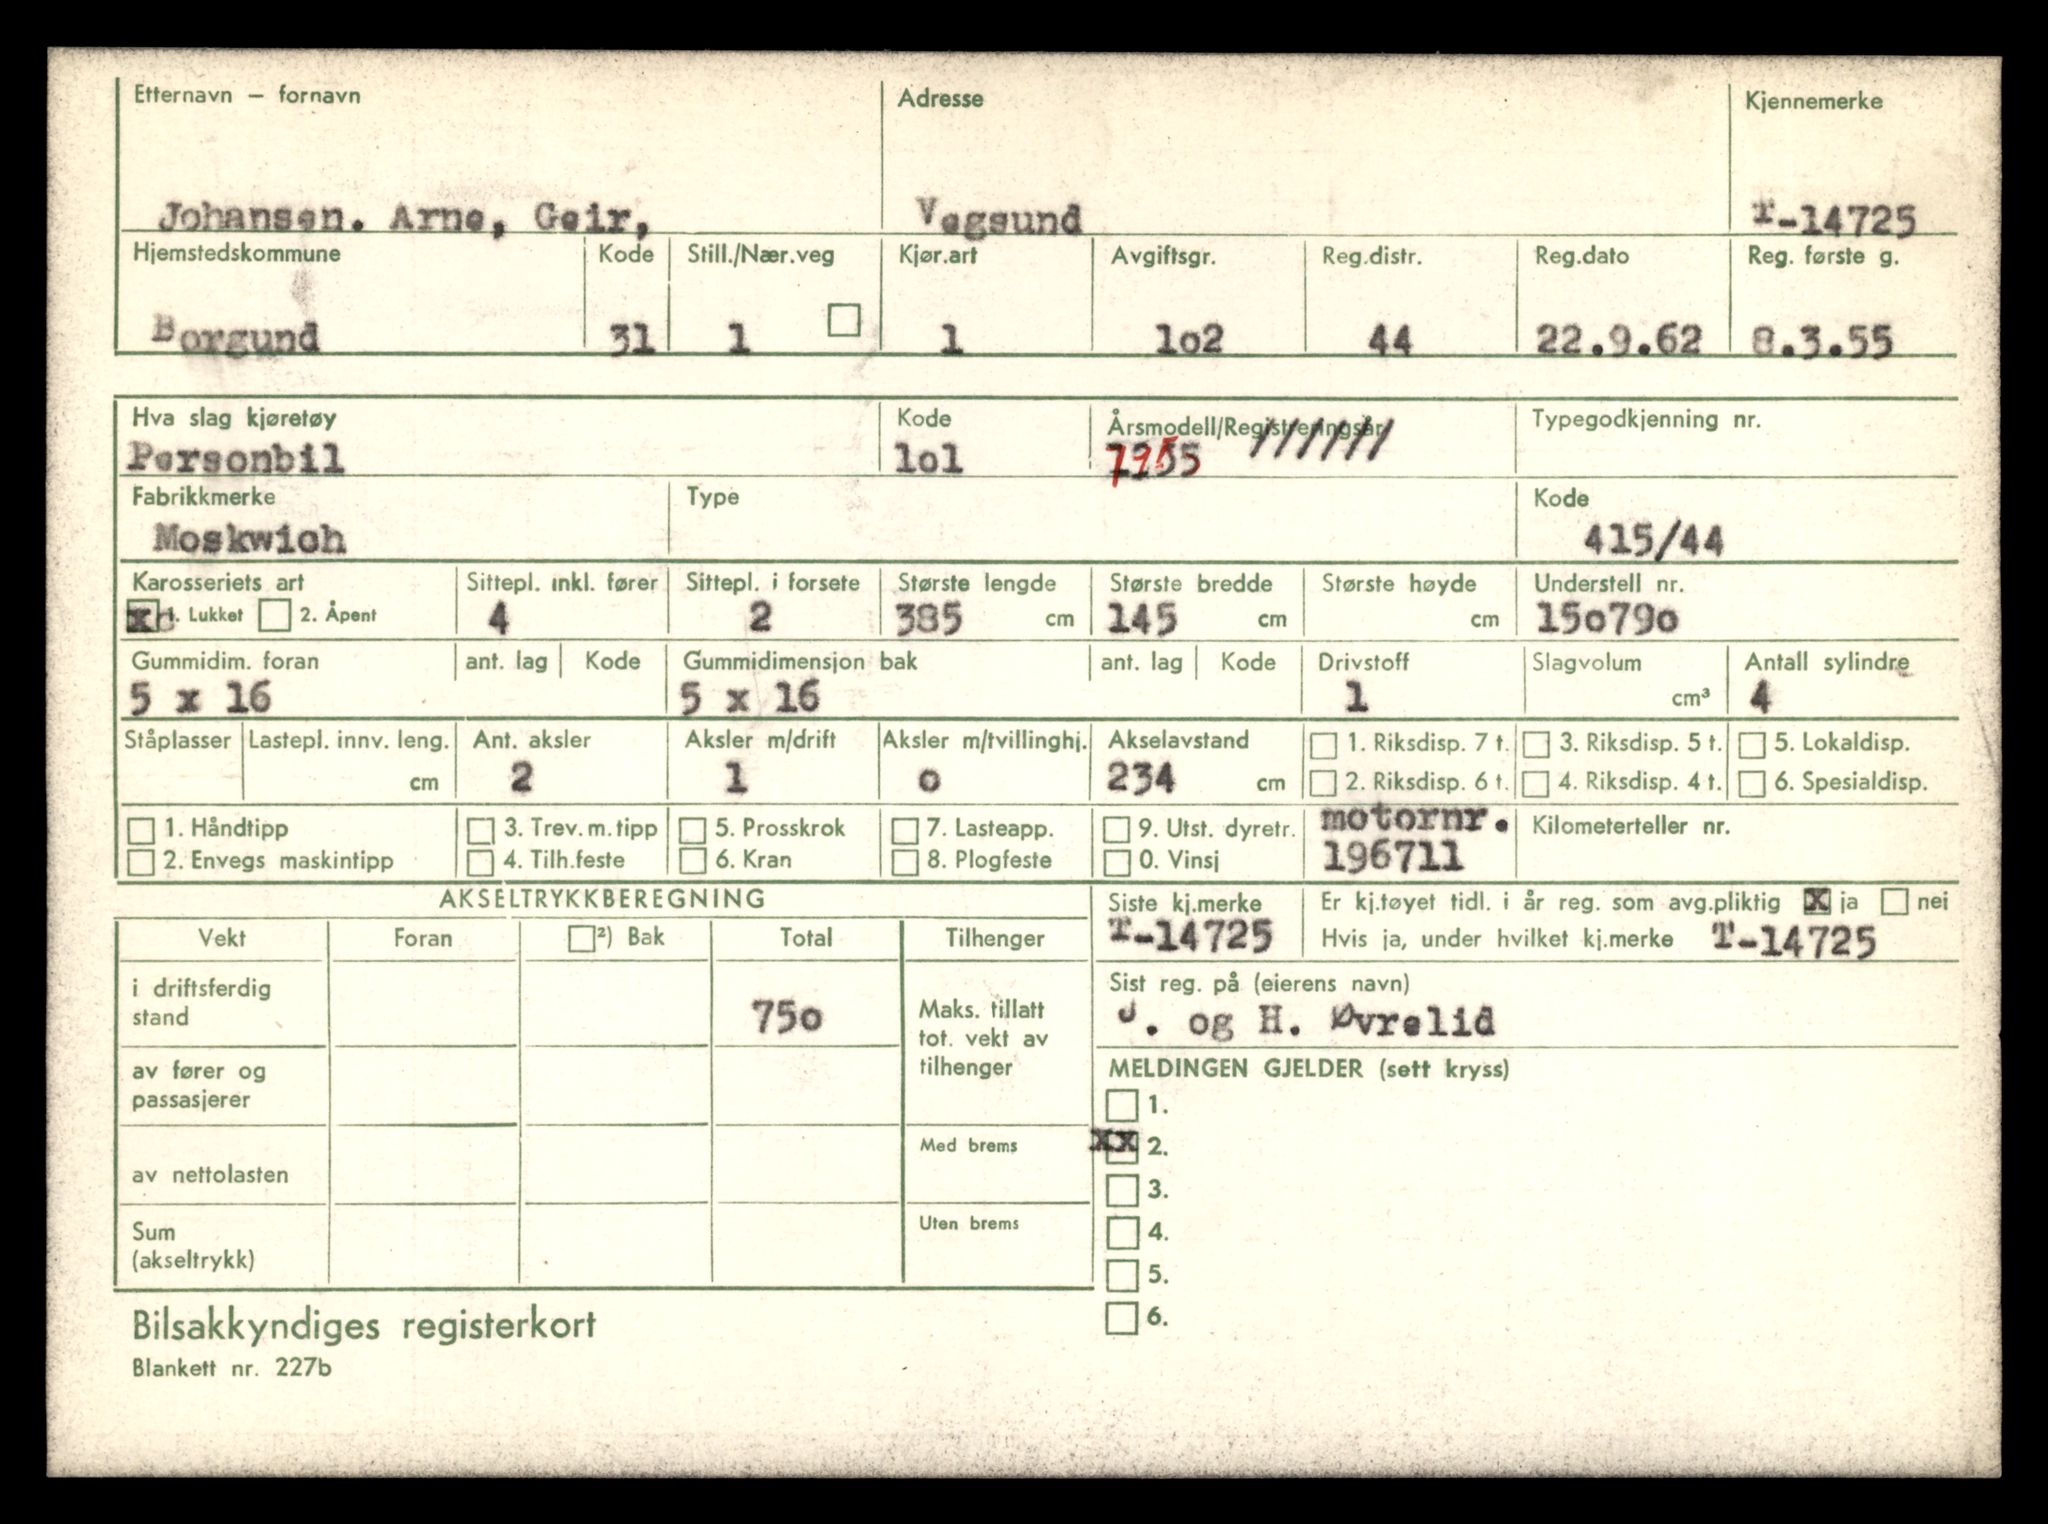 Etternavn – fornavn Adresse Kjennemerke
Johansen. Arne, Geir, Vegsund T-14725
Hjemstedskommune Kode Still./Nær.veg Kjør.art Avgiftsgr. Reg.distr. Reg.dato Reg. første g.
Borgund 31 1 1 1o2 44 22.9.62 8.3.55
Hva slag kjøretøy Kode Årsmodell/Registreringsår Typegodkjenning nr.
Personbil 1o1 //////
Fabrikkmerke Type Kode
Moskwich 415/44
Karosseriets art Sittepl. inkl. fører Sittepl. i forsete Største lengde Største bredde Største høyde Understell nr.
x 1. Lukket 2. Åpent 4 2 385 cm 145 cm cm 15o79o
Gummidim. foran ant. lag Kode Gummidimensjon bak ant. lag Kode Drivstoff Slagvolum Antall sylindre
5 x 16 5 x 16 1 cm³ 4
Ståplasser Lastepl. innv. leng. Ant. aksler Aksler m/drift Aksler m/tvillinghj. Akselavstand 1. Riksdisp. 7 t. 3. Riksdisp. 5 t. 5. Lokaldisp.
cm 2 1 o 234 cm 2. Riksdisp. 6 t. 4. Riksdisp. 4 t. 6. Spesialdisp.
1. Håndtipp 3. Trev. m. tipp 5. Prosskrok 7. Lasteapp. 9. Utst. dyretr. motornr. Kilometerteller nr.
2. Envegs maskintipp 4. Tilh.feste 6. Kran 8. Plogfeste 0. Vinsj 196711
AKSELTRYKKBEREGNING Siste kj.merke Er kj.tøyet tidl. i år reg. som avg.pliktig x ja nei
Vekt Foran ²) Bak Total Tilhenger T-14725 Hvis ja, under hvilket kj.merke T-14725
i driftsferdig stand 75o Maks. tillatt tot. vekt av tilhenger Sist reg. på (eierens navn)
J. og H. Øvrelid
av fører og passasjerer MELDINGEN GJELDER (sett kryss)
1.
Med brems xx 2.
av nettolasten 3.
Sum (akseltrykk) Uten brems 4.
5.
Bilsakkyndiges registerkort 6.
Blankett nr. 227b